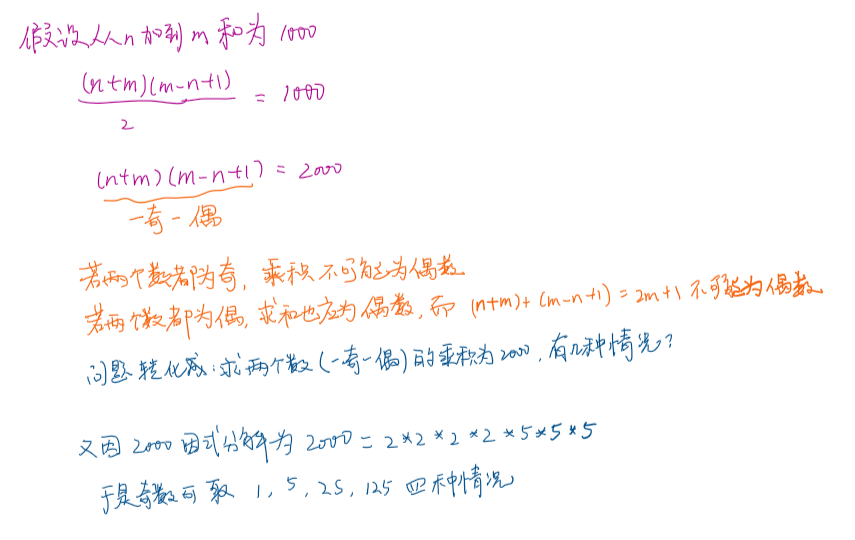 假设从n加到m和为1000
(n+m)(m-n+1)/2 = 1000
(n+m)(m-n+1) = 2000
一奇一偶
若两个数都为奇，乘积不可能为偶数
若两个数都为偶，求和也应为偶数，而 (n+m)+(m-n+1)=2m+1 不可能为偶数
问题转化成：求两个数(一奇一偶)的乘积为2000，有几种情况？
又因 2000因式分解为 2000 = 2*2*2*2*5*5*5
于是奇数可取 1, 5, 25, 125 四种情况